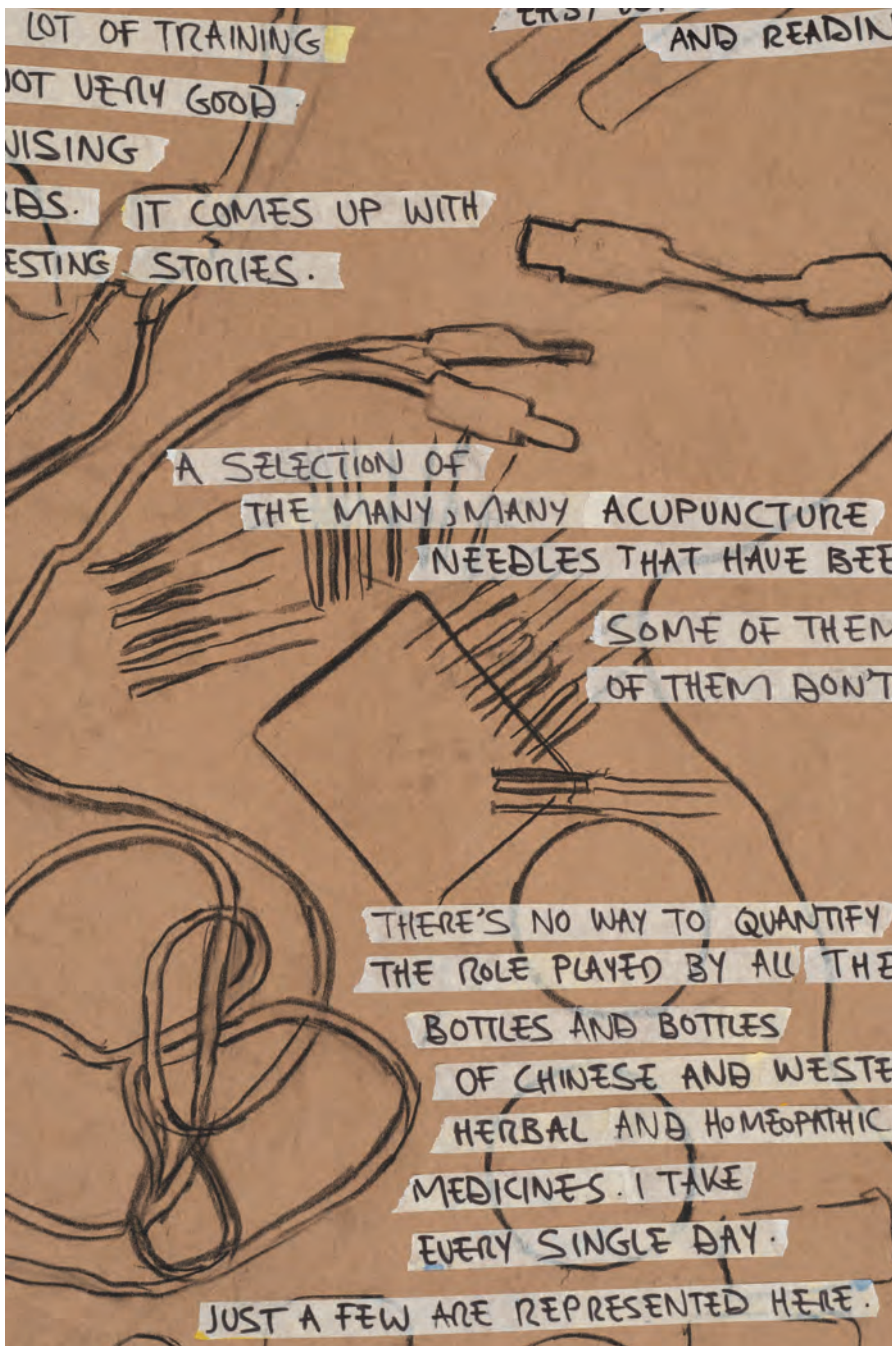 LOT OF TRAINING
AND READIN
OT VERY GOOD.
ISING
DS. IT COMES UP WITH
ESTING STORIES.
A SELECTION OF
THE MANY, MANY ACUPUNCTURE
NEEDLES THAT HAVE BEE
SOME OF THEM
OF THEM DON'T
THERE'S NO WAY TO QUANTIFY
THE ROLE PLAYED BY ALL THE
BOTTLES AND BOTTLES
OF CHINESE AND WESTE
HERBAL AND HOMEOPATHIC
MEDICINES. I TAKE
EVERY SINGLE DAY.
JUST A FEW ARE REPRESENTED HERE.